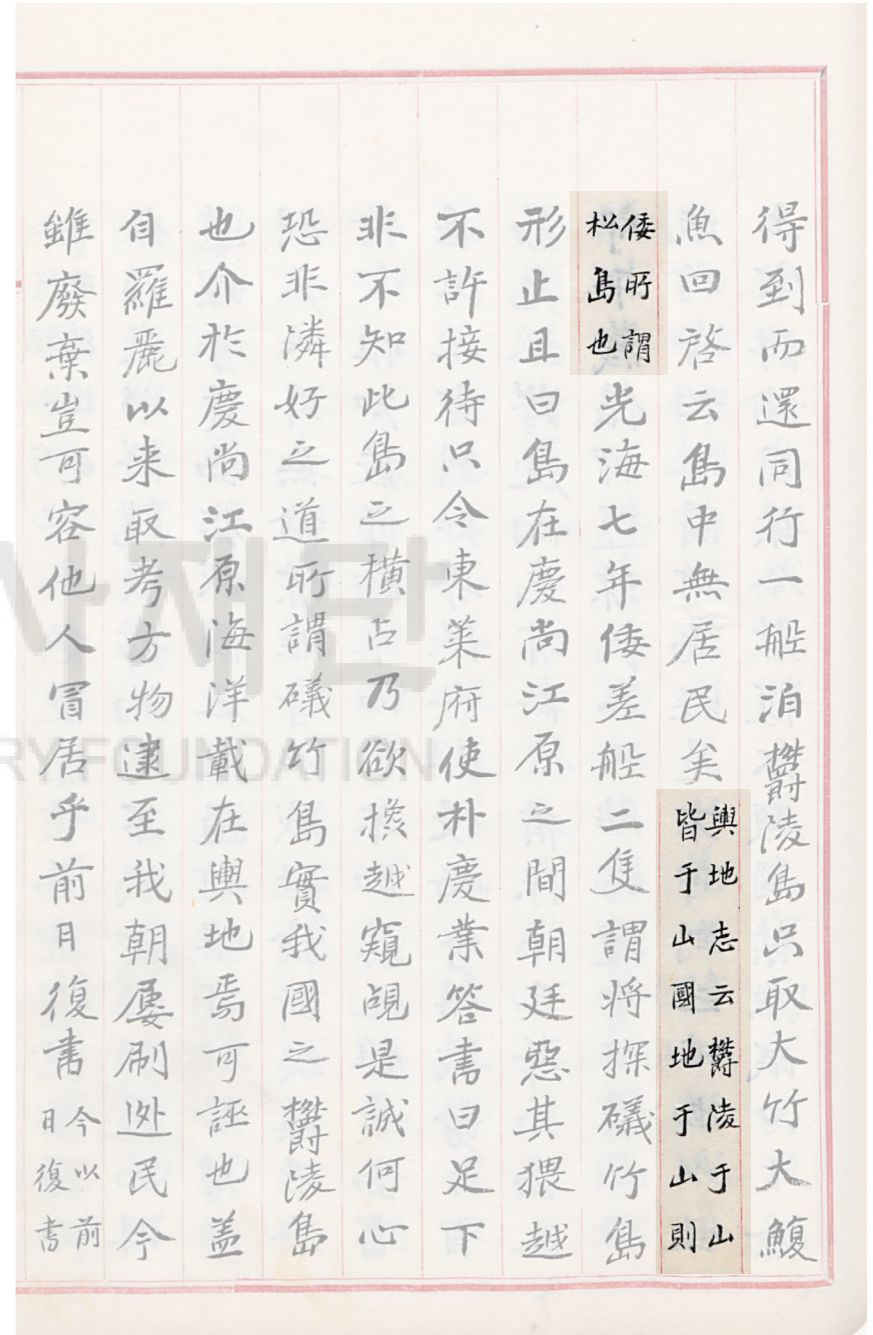 得到而還同行一船泊欝陵島只取大竹大鰒
魚回啓云島中無居民矣
輿地志云欝陵于山
皆于山國地于山則
倭所謂
松島也
光海七年倭差船二隻謂将探礒竹島
形止且曰島在慶尚江原之間朝廷惡其猥越
不許接待只令東萊府使朴慶業答書曰足下
非不知此島之横占乃欲攙越窺覘是誠何心
恐非隣好之道所謂礒竹島實我國之欝陵島
也介於慶尚江原海洋載在輿地焉可誣也盖
自羅麗以来取考方物逮至我朝屢刷逃民今
雖廢棄豈可容他人冒居乎前日復書
今以前
日復書
사재단
RY FOUNDATION